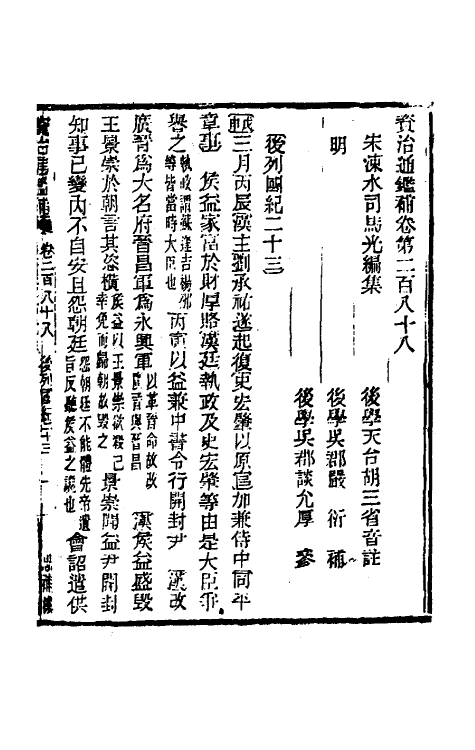 資治通鑑補卷第二百八十八
宋涑水司馬光編集
後學天台胡三省音註
明
後學吳郡嚴衍補
後學吳郡談允厚參
後列國紀二十三
三月丙辰漢主劉承祐遂起復史宏肇以原官加兼侍中同平
章事 侯益家富於財厚賂漢廷執政及史宏肇等由是大臣爭
譽之執政謂蘇逢吉楊邠等皆當時大臣也 丙寅以益兼中書令行開封尹 漢改
廣晉爲大名府晉昌軍爲永興軍以革晉命故改廣晉與晉昌 漢侯益盛毀
王景崇於朝言其恣橫侯益以王景崇欲殺己幸免而歸朝故毀之 景崇聞益尹開封
知事已變內不自安且怨朝廷怨朝廷不能體先帝遺旨反聽侯益之讒也 會詔遣供
資治通鑑補 卷二百八十八 後列國紀二十三